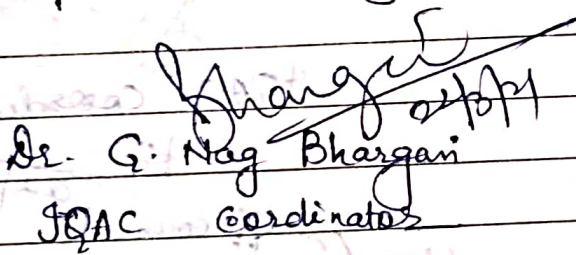 Bhargavi
Dr. G. Nag Bhargavi
IQAC Coordinator